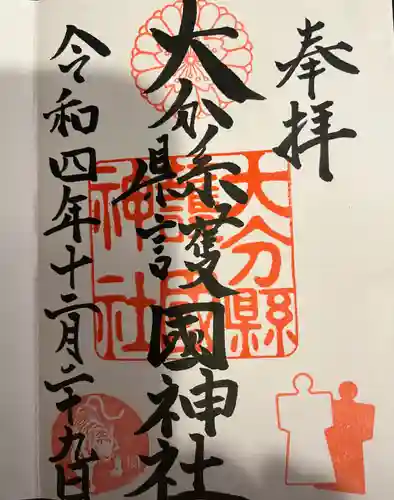 奉拝
大分縣護國神社
令和四年十二月二十九日
大分縣
護國
神社